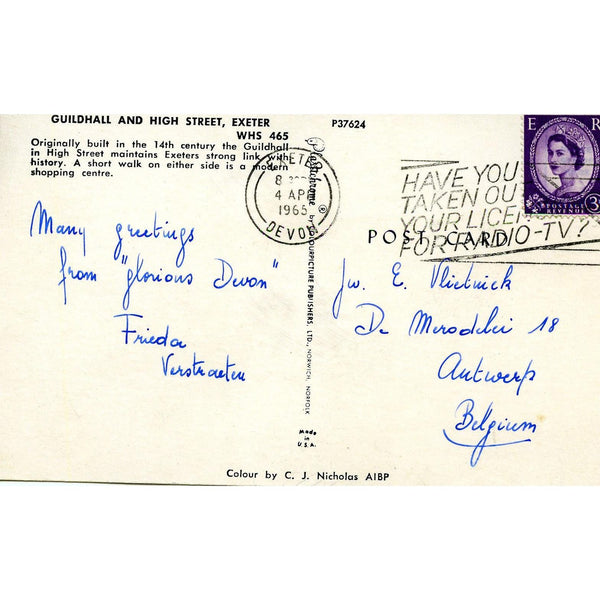 GUILDHALL AND HIGH STREET, EXETER
WHS 465
P37624
Originally built in the 14th century the Guildhall
in High Street maintains Exeters strong link with
history. A short walk on either side is a modern
shopping centre.
Many greetings
from "glorious Devon"
Frieda
Verstraeten
Plastichrome ® by COLOURPICTURE PUBLISHERS, LTD., NORWICH, NORFOLK
Made
in
U.S.A.
EXETER
8
4 AP
1965
DEVON
HAVE YOU
TAKEN OU
YOUR LICEN
FOR RADIO-TV?
E R
POSTAGE
REVENUE
3
POST CARD
Jw. E. Vlietinck
De Merodelei 18
Antwerp
Belgium
Colour by C. J. Nicholas AIBP